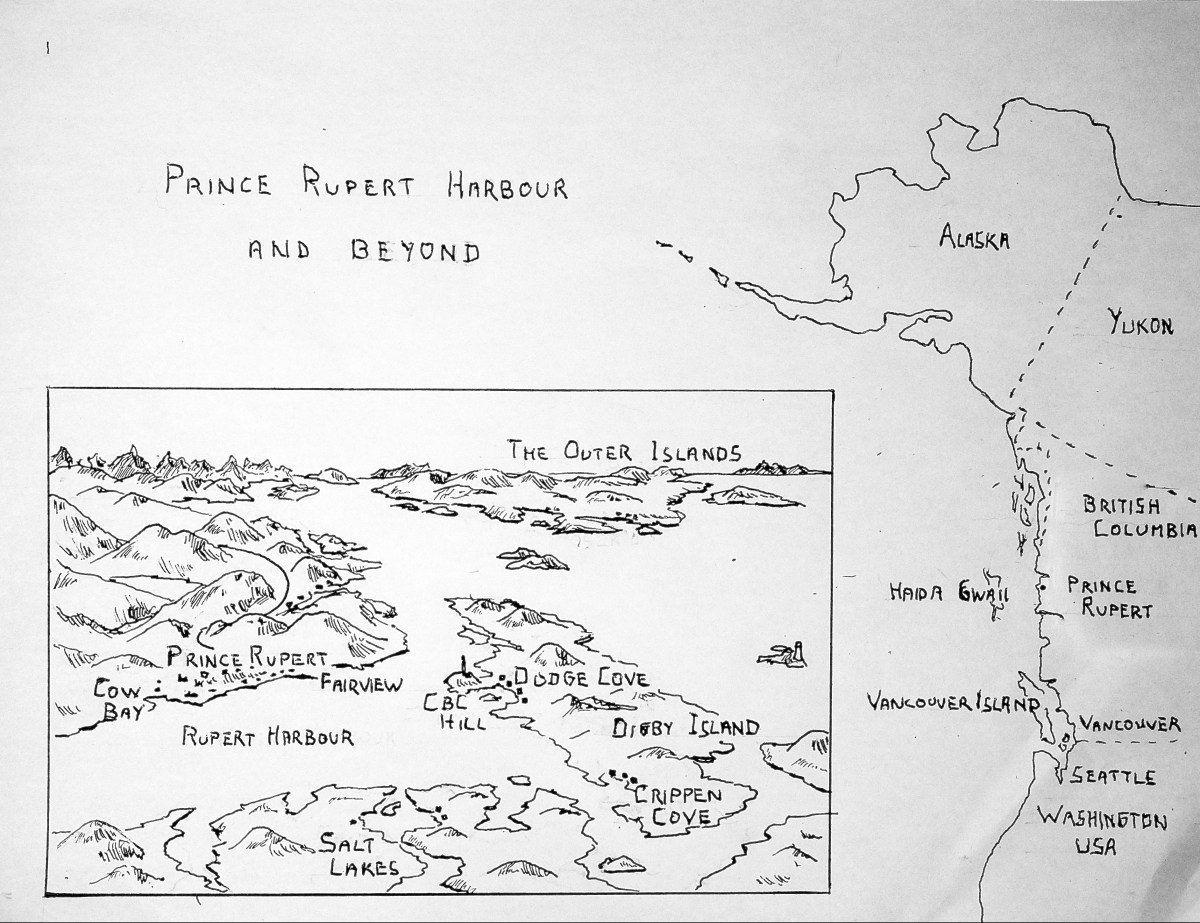 PRINCE RUPERT HARBOUR
AND BEYOND
ALASKA
YUKON
THE OUTER ISLANDS
BRITISH
COLUMBIA
HAIDA GWAII
PRINCE
RUPERT
PRINCE RUPERT
FAIRVIEW
COW
BAY
DODGE COVE
CBC
HILL
RUPERT HARBOUR
DIGBY ISLAND
VANCOUVER ISLAND
VANCOUVER
SEATTLE
CRIPPEN
COVE
WASHINGTON
USA
SALT
LAKES